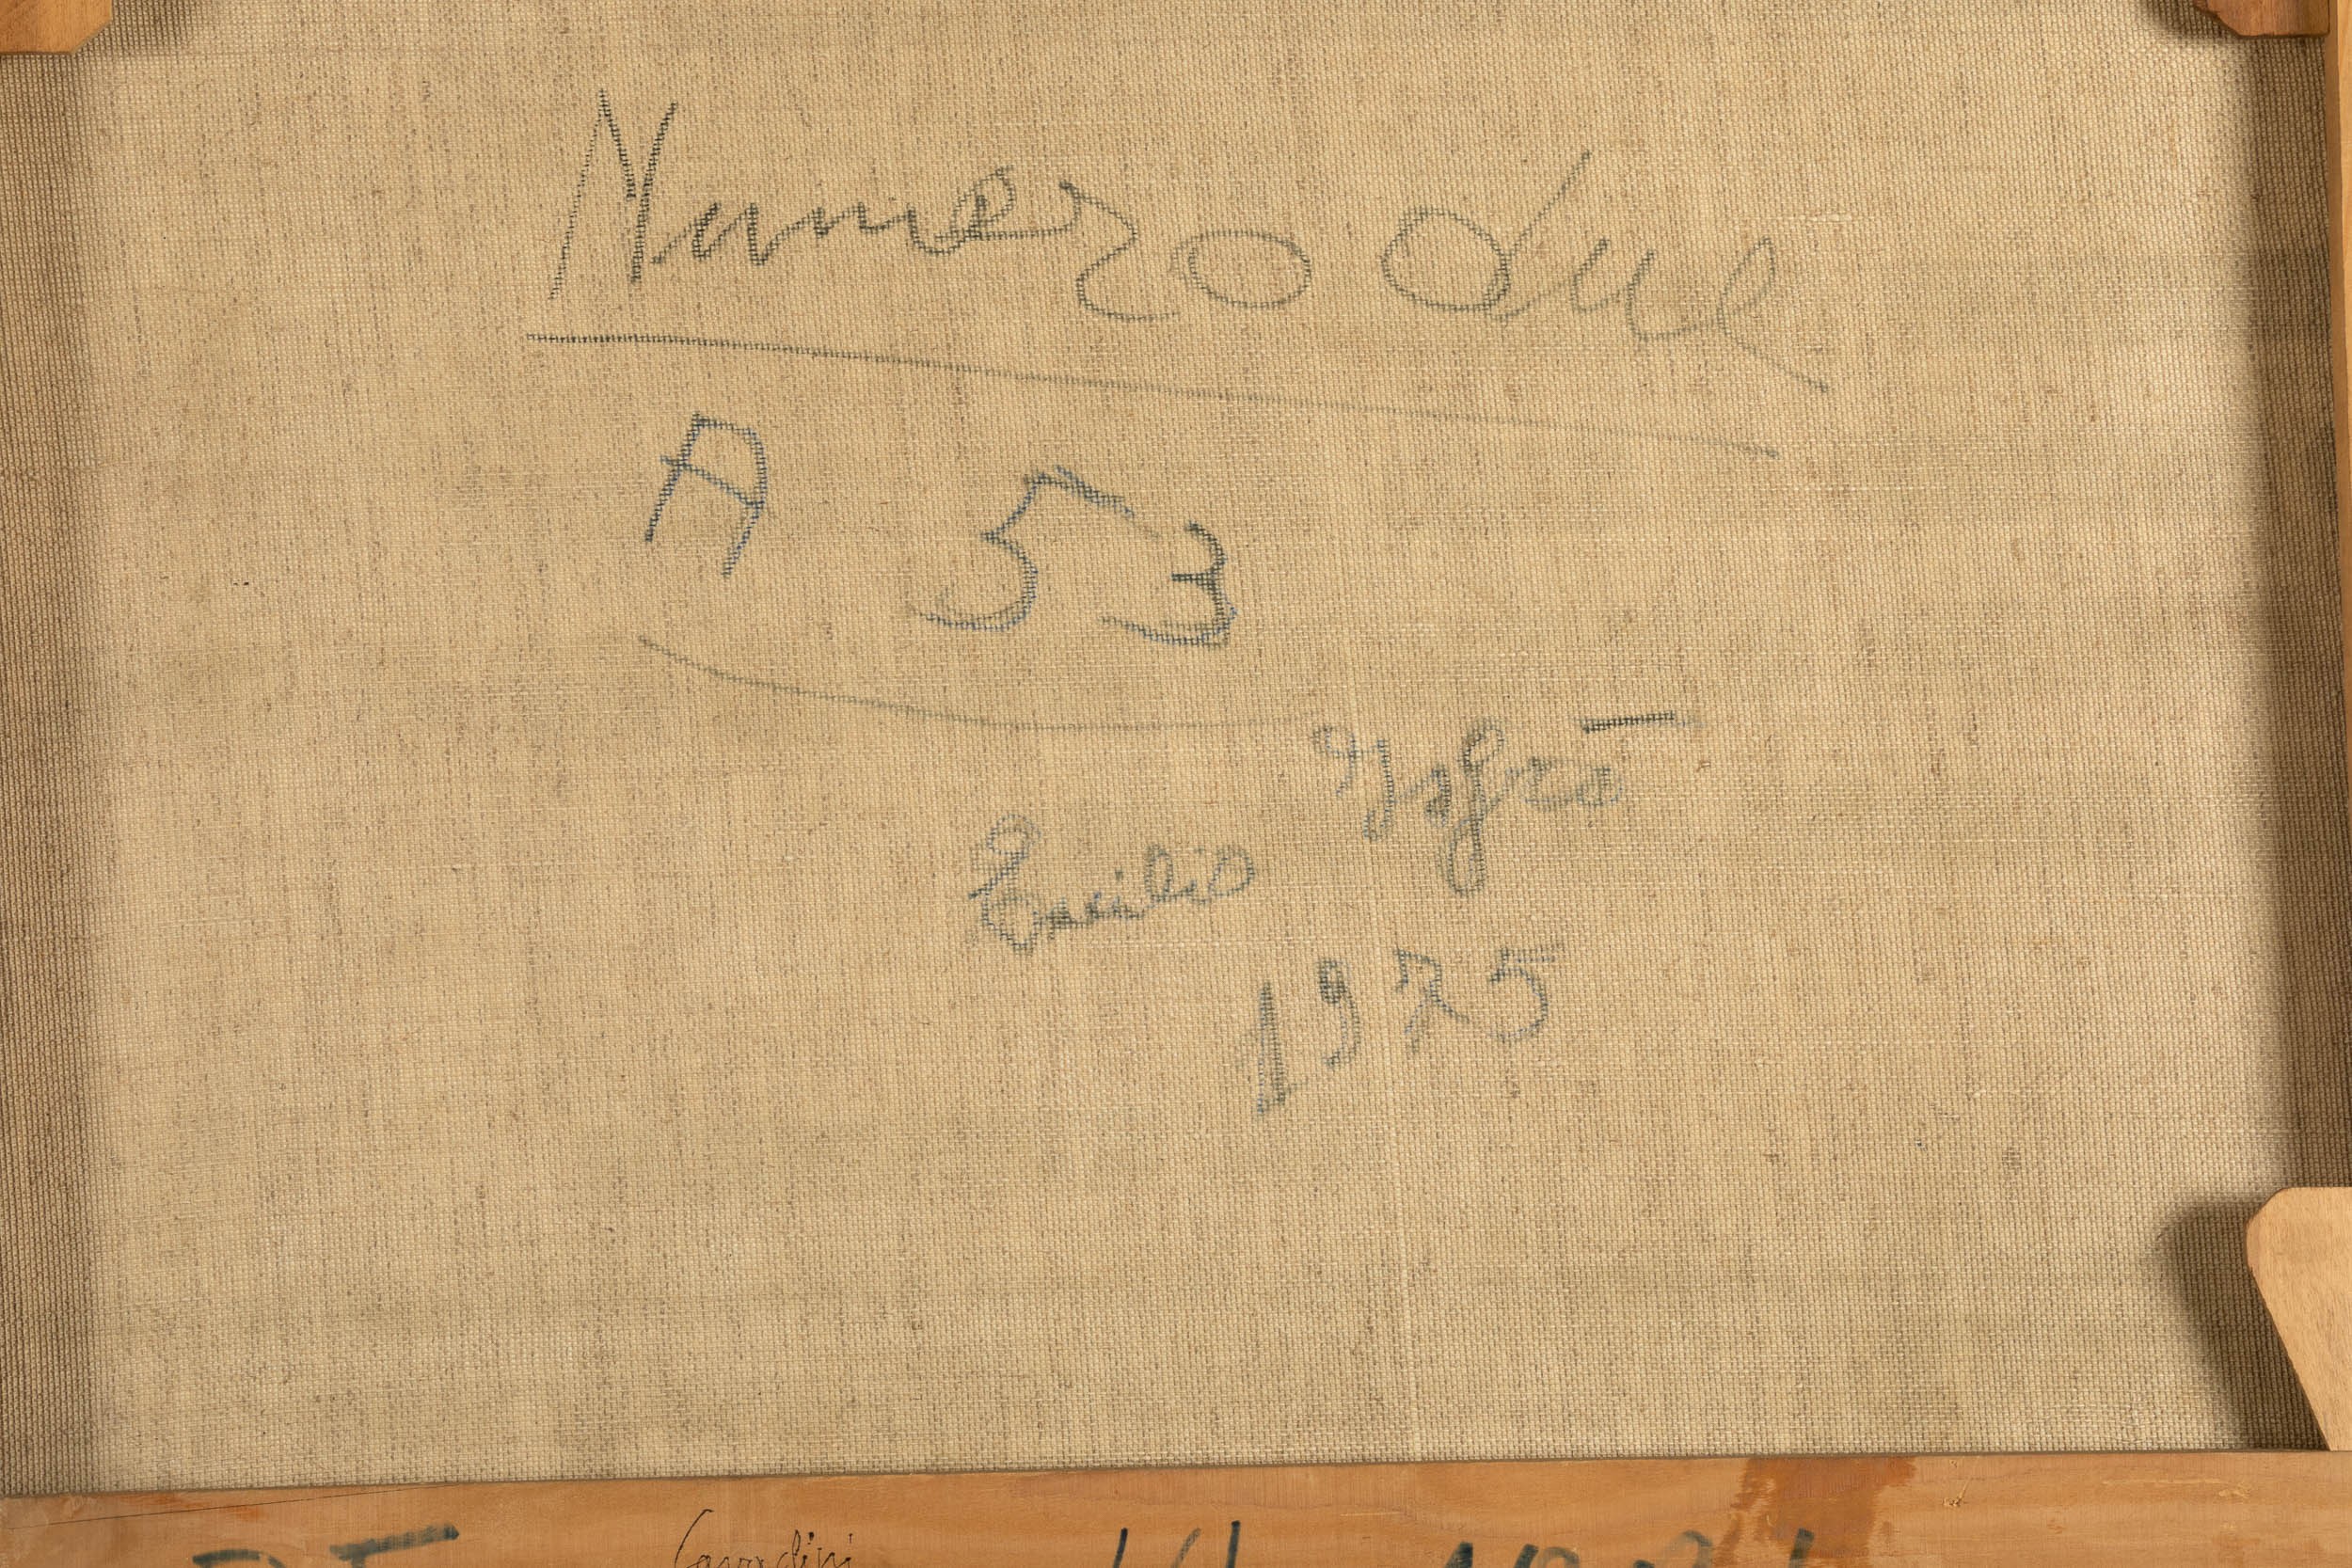 Numero due
A 53
Emilio Isgrò
1975